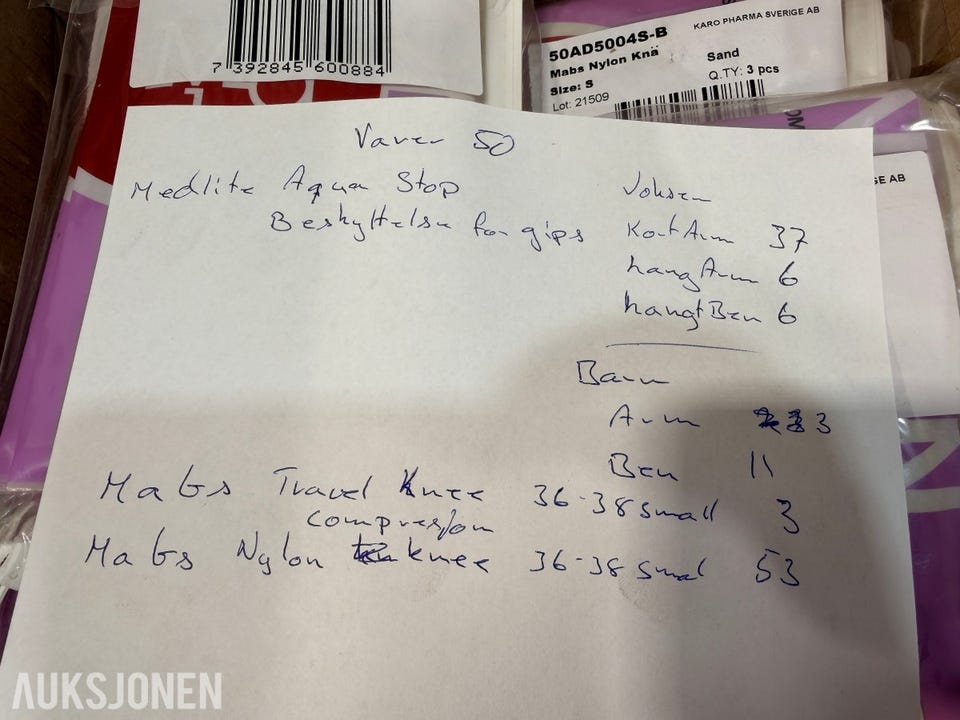 7 392845 600884
KARO PHARMA SVERIGE AB
50AD5004S-B
Mabs Nylon Knä
Sand
Size: S
Q.TY: 3 pcs
Lot: 21509
SE AB
Varer 50
Medlite Aqua Stop
Voksen
Beskyttelse for gips
Kort Arm 37
Lang Arm 6
Langt Ben 6
Barn
Arm 3
Ben 11
Mabs Travel Knee 36-38 small 3
Compresjon
Mabs Nylon knee 36-38 smal 53
AUKSJONEN